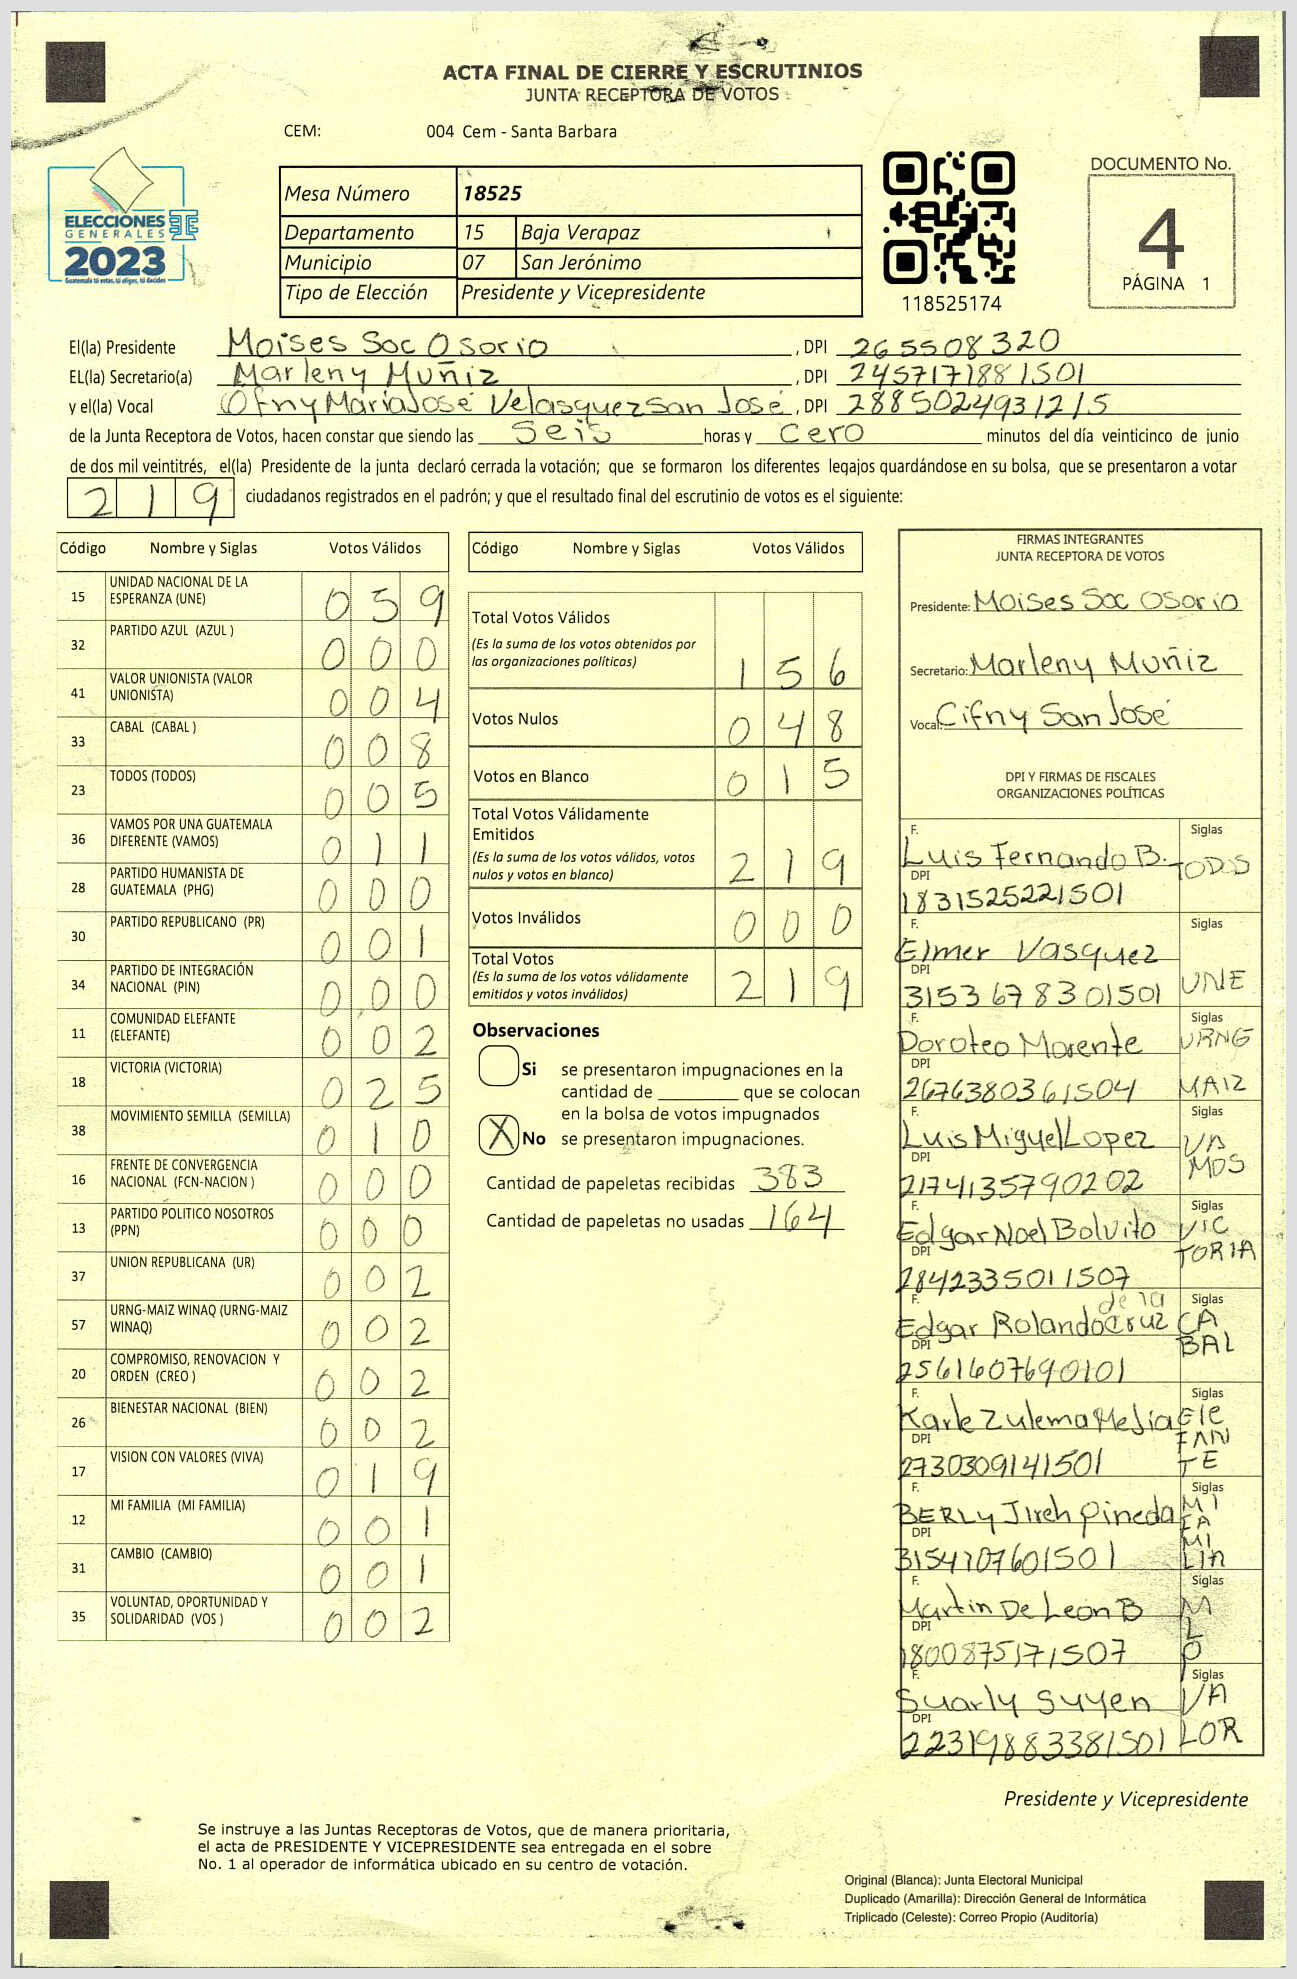 ACTA FINAL DE CIERRE Y ESCRUTINIOS
JUNTA RECEPTORA DE VOTOS
CEM: 004 Cem - Santa Barbara
ELECCIONES
GENERALES
2023
Guatemala tú votas, tú eliges, tú decides
Mesa Número 18525
Departamento 15 Baja Verapaz
Municipio 07 San Jerónimo
Tipo de Elección Presidente y Vicepresidente
118525174
DOCUMENTO No.
4
PÁGINA 1
El(la) Presidente Moises Soc Osorio, DPI 265508320
EL(la) Secretario(a) Marleny Muñiz, DPI 2457171881501
y el(la) Vocal Cifny MariaJosé Velasquez San José, DPI 2885024931215
de la Junta Receptora de Votos, hacen constar que siendo las seis horas y cero minutos del día veinticinco de junio
de dos mil veintitrés, el(la) Presidente de la junta declaró cerrada la votación; que se formaron los diferentes legajos guardándose en su bolsa, que se presentaron a votar
219 ciudadanos registrados en el padrón; y que el resultado final del escrutinio de votos es el siguiente:
Código Nombre y Siglas Votos Válidos
15 UNIDAD NACIONAL DE LA ESPERANZA (UNE) 059
32 PARTIDO AZUL (AZUL ) 000
41 VALOR UNIONISTA (VALOR UNIONISTA) 004
33 CABAL (CABAL ) 008
23 TODOS (TODOS) 005
36 VAMOS POR UNA GUATEMALA DIFERENTE (VAMOS) 011
28 PARTIDO HUMANISTA DE GUATEMALA (PHG) 000
30 PARTIDO REPUBLICANO (PR) 001
34 PARTIDO DE INTEGRACIÓN NACIONAL (PIN) 000
11 COMUNIDAD ELEFANTE (ELEFANTE) 002
18 VICTORIA (VICTORIA) 025
38 MOVIMIENTO SEMILLA (SEMILLA) 010
16 FRENTE DE CONVERGENCIA NACIONAL (FCN-NACION ) 000
13 PARTIDO POLITICO NOSOTROS (PPN) 000
37 UNION REPUBLICANA (UR) 002
57 URNG-MAIZ WINAQ (URNG-MAIZ WINAQ) 002
20 COMPROMISO, RENOVACION Y ORDEN (CREO ) 002
26 BIENESTAR NACIONAL (BIEN) 002
17 VISION CON VALORES (VIVA) 019
12 MI FAMILIA (MI FAMILIA) 001
31 CAMBIO (CAMBIO) 001
35 VOLUNTAD, OPORTUNIDAD Y SOLIDARIDAD (VOS ) 002
Código Nombre y Siglas Votos Válidos
Total Votos Válidos
(Es la suma de los votos obtenidos por
las organizaciones políticas) 156
Votos Nulos 048
Votos en Blanco 015
Total Votos Válidamente
Emitidos
(Es la suma de los votos válidos, votos
nulos y votos en blanco) 219
Votos Inválidos 000
Total Votos
(Es la suma de los votos válidamente
emitidos y votos inválidos) 219
Observaciones
Si se presentaron impugnaciones en la
cantidad de ________ que se colocan
en la bolsa de votos impugnados
X No se presentaron impugnaciones.
Cantidad de papeletas recibidas 383
Cantidad de papeletas no usadas 164
FIRMAS INTEGRANTES
JUNTA RECEPTORA DE VOTOS
Presidente: Moises Soc Osorio
Secretario: Marleny Muñiz
Vocal: Cifny San José
DPI Y FIRMAS DE FISCALES
ORGANIZACIONES POLÍTICAS
F. Siglas
Luis Fernando B. TODOS
DPI
1831525221501
F. Siglas
Elmer Vasquez UNE
DPI
3153678301501
F. Siglas
Doroteo Morente URNG
DPI
2676380361504 MAIZ
F. Siglas
Luis Miguel Lopez VA
DPI MOS
2174135790202
F. Siglas
Edgar Noel Bolvito VIC
DPI TORIA
2842335011507
F. Siglas
Edgar Rolando de la Cruz CA
DPI BAL
2561607690101
F. Siglas
Karle Zulema Mejia Ele
DPI FAN
2730309141501 TE
F. Siglas
BERLY Jireh Pineda MI
DPI FA MI
3154707601501 LIA
F. Siglas
Martin De León B M
DPI L
1800875171507 P
F. Siglas
Suarly Suyen VA
DPI LOR
2231988338 1501
Presidente y Vicepresidente
Se instruye a las Juntas Receptoras de Votos, que de manera prioritaria,
el acta de PRESIDENTE Y VICEPRESIDENTE sea entregada en el sobre
No. 1 al operador de informática ubicado en su centro de votación.
Original (Blanca): Junta Electoral Municipal
Duplicado (Amarilla): Dirección General de Informática
Triplicado (Celeste): Correo Propio (Auditoría)